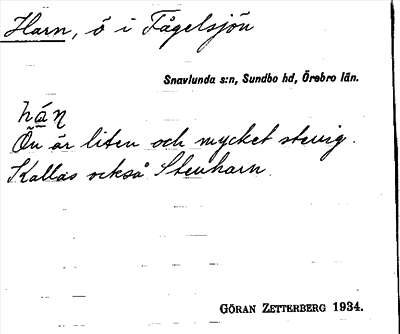 Harn, ö i Fågelsjön
Snavlunda s:n, Sundbo hd, Örebro län.
hán
Ön är liten och mycket stenig.
Kallas också Stenharn.
GÖRAN ZETTERBERG 1934.